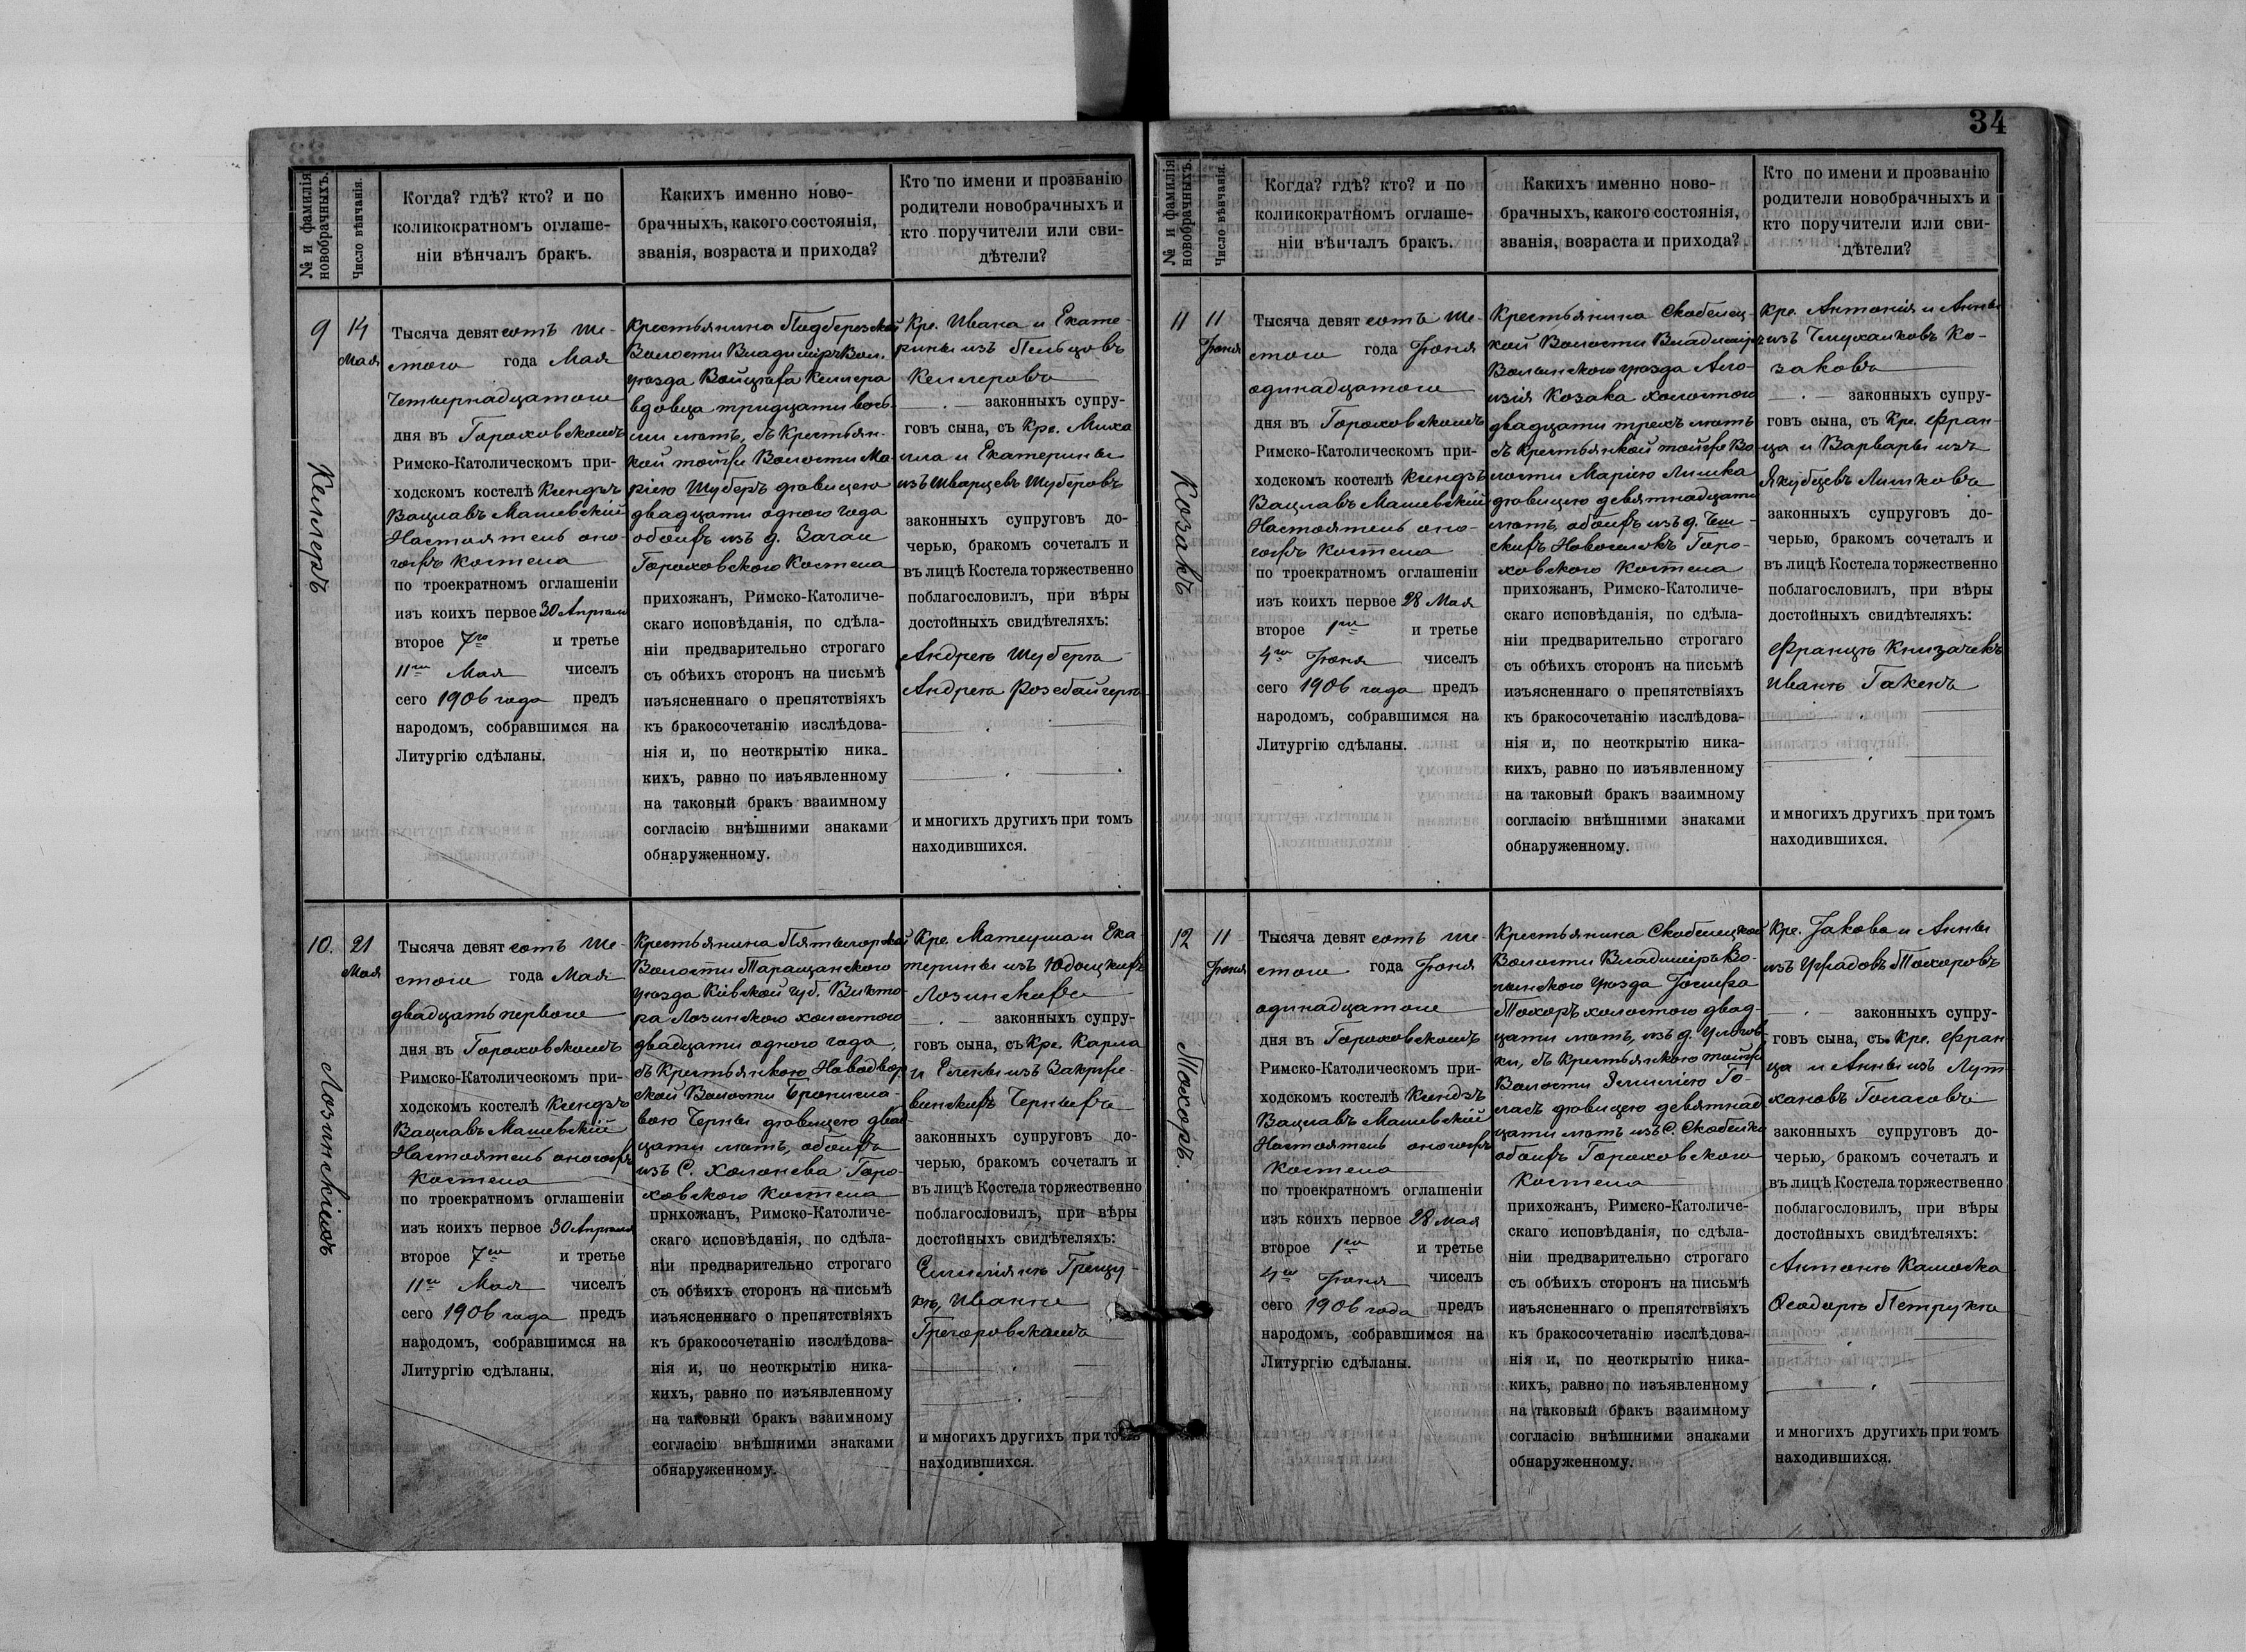 34
№ и фамилія новобрачныхъ.
Число вѣнчанія.
Когда? гдѣ? кто? и по
коликократномъ оглаше-
ніи вѣнчалъ бракъ.
Какихъ именно ново-
брачныхъ, какого состоянія,
званія, возраста и прихода?
Кто по имени и прозванію
родители новобрачныхъ и
кто поручители или сви-
дѣтели?
9
Келлеръ
14
Мая
Тысяча девятсотъ ше-
стого года Мая
четырнадцатого
дня въ Гороховскомъ
Римско-Католическомъ при-
ходскомъ костелѣ Ксендзъ
Вацлавъ Машевскій
Настоятель оно-
гожъ Костела
по троекратномъ оглашеніи
изъ коихъ первое 30 Апрѣля
второе 7го и третье
11го Мая чиселъ
сего 1906 года предъ
народомъ, собравшимся на
Литургію сдѣланы.
Крестьянина Подберезской
Волости Владиміръ Вол.
уѣзда Войцѣха Келлера
вдовца тридцати вось-
ми лѣтъ, съ Крестьян-
кой тойже Волости Ма-
ріею Шуберъ дѣвицею
двадцати одного года
обоихъ изъ д.
Гороховского Костела
прихожанъ, Римско-Католиче-
скаго исповѣданія, по сдѣла-
ніи предварительно строгаго
съ обѣихъ сторонъ на письмѣ
изъясненнаго о препятствіяхъ
къ бракосочетанію изслѣдова-
нія и, по неоткрытію ника-
кихъ, равно по изъявленному
на таковый бракъ взаимному
согласію внѣшними знаками
обнаруженному.
Кре. Ивана и Екате-
рины изъ Пельцовъ
Келлеровъ
законныхъ супру-
говъ сына, съ Кре. Миха
ила и Екатерины
изъ Шварцевъ Шуберовъ
законныхъ супруговъ до-
черью, бракомъ сочеталъ и
въ лицѣ Костела торжественно
поблагословилъ, при вѣры
достойныхъ свидѣтеляхъ:
Андреѣ Шуберѣ
Андреѣ Розебайгерѣ
и многихъ другихъ при томъ
находившихся.
10.
Лозинскіхъ
21
Мая
Тысяча девятсотъ ше-
стого года Мая
двадцать первого
дня въ Гороховскомъ
Римско-Католическомъ при-
ходскомъ костелѣ Ксендзъ
Вацлавъ Машевскій
Настоятель оногожъ
Костела
по троекратномъ оглашеніи
изъ коихъ первое 30 Апрѣля
второе 7го и третье
11го Мая чиселъ
сего 1906 года предъ
народомъ, собравшимся на
Литургію сдѣланы.
Крестьянина Пятигорской
Волости Таращанского
уѣзда Кіевской губ. Викто-
ра Лозинского холостого
двадцати одного года,
съ Крестьянкою Новодвор
ской Волости Бронисла-
вою Черны дѣвицею два
цати лѣтъ, обоихъ
изъ С. Холонева Горо-
ховского Костела
прихожанъ, Римско-Католиче-
скаго исповѣданія, по сдѣла-
ніи предварительно строгаго
съ обѣихъ сторонъ на письмѣ
изъясненнаго о препятствіяхъ
къ бракосочетанію изслѣдова-
нія и, по неоткрытію ника-
кихъ, равно по изъявленному
на таковый бракъ взаимному
согласію внѣшними знаками
обнаруженному.
Кре. Матеуша и Ека-
терины изъ
Лозинскихъ
законныхъ супру-
говъ сына, съ Кре. Карла
и Елены изъ Закрже-
винскихъ Черныхъ
законныхъ супруговъ до-
черью, бракомъ сочеталъ и
въ лицѣ Костела торжественно
поблагословилъ, при вѣры
достойныхъ свидѣтеляхъ:
Емиліянѣ Грещу-
кѣ, Иванѣ
Грегоровскомъ
и многихъ другихъ при томъ
находившихся.
№ и фамилія новобрачныхъ.
Число вѣнчанія.
Когда? гдѣ? кто? и по
коликократномъ оглаше-
ніи вѣнчалъ бракъ.
Какихъ именно ново-
брачныхъ, какого состоянія,
званія, возраста и прихода?
Кто по имени и прозванію
родители новобрачныхъ и
кто поручители или сви-
дѣтели?
11
Козакъ
11
Іюня
Тысяча девятсотъ ше-
стого года Іюня
одинадцатого
дня въ Гороховскомъ
Римско-Католическомъ при-
ходскомъ костелѣ Ксендзъ
Вацлавъ Машевскій
Настоятель оно-
гожъ Костела
по троекратномъ оглашеніи
изъ коихъ первое 28 Мая
второе 1го и третье
4го Іюня чиселъ
сего 1906 года предъ
народомъ, собравшимся на
Литургію сдѣланы.
Крестьянина Скобелец-
кой Волости Владиміръ
Волынского уѣзда Ало-
изія Козака холостого
двадцати трехъ лѣтъ
съ Крестьянкой тойже Во
лости Маріею Лишка
дѣвицею девятнадцати
лѣтъ, обоихъ изъ д. Чеш-
скихъ Новоселокъ Горо-
ховского Костела
прихожанъ, Римско-Католиче-
скаго исповѣданія, по сдѣла-
ніи предварительно строгаго
съ обѣихъ сторонъ на письмѣ
изъясненнаго о препятствіяхъ
къ бракосочетанію изслѣдова-
нія и, по неоткрытію ника-
кихъ, равно по изъявленному
на таковый бракъ взаимному
согласію внѣшними знаками
обнаруженному.
Кре. Антонія и Анны
изъ Ко-
заковъ
законныхъ супру-
говъ сына, съ Кре. Фран-
ца и Варвары изъ
Якубцевъ Лишковъ
законныхъ супруговъ до-
черью, бракомъ сочеталъ и
въ лицѣ Костела торжественно
поблагословилъ, при вѣры
достойныхъ свидѣтеляхъ:
Францѣ Книзачекъ
Иванѣ Гакенъ
и многихъ другихъ при томъ
находившихся.
12
Тохоръ.
11
Іюня
Тысяча девятсотъ ше-
стого года Іюня
одинадцатого
дня въ Гороховскомъ
Римско-Католическомъ при-
ходскомъ костелѣ Ксендзъ
Вацлавъ Машевскій
Настоятель оногожъ
Костела
по троекратномъ оглашеніи
изъ коихъ первое 28 Мая
второе 1го и третье
4го Іюня чиселъ
сего 1906 года предъ
народомъ, собравшимся на
Литургію сдѣланы.
Крестьянина Скобелецкой
Волости Владиміръ Во-
лынского Уѣзда Іосифа
Тохоръ холостого двад-
цати лѣтъ, изъ д.
ки, съ Крестьянкою тойже
Волости Эмиліею Го-
ласъ дѣвицею девятнад
цати лѣтъ изъ С. Скобелки
обоихъ Гороховского
Костела
прихожанъ, Римско-Католиче-
скаго исповѣданія, по сдѣла-
ніи предварительно строгаго
съ обѣихъ сторонъ на письмѣ
изъясненнаго о препятствіяхъ
къ бракосочетанію изслѣдова-
нія и, по неоткрытію ника-
кихъ, равно по изъявленному
на таковый бракъ взаимному
согласію внѣшними знаками
обнаруженному.
Кре. Іакова и Анны
изъ Тохоровъ
законныхъ супру-
говъ сына, съ Кре. Фран
ца и Анны изъ Лут-
хановъ Голасовъ
законныхъ супруговъ до-
черью, бракомъ сочеталъ и
въ лицѣ Костела торжественно
поблагословилъ, при вѣры
достойныхъ свидѣтеляхъ:
Антонѣ
Ѳеодорѣ Петрукѣ
и многихъ другихъ при томъ
находившихся.